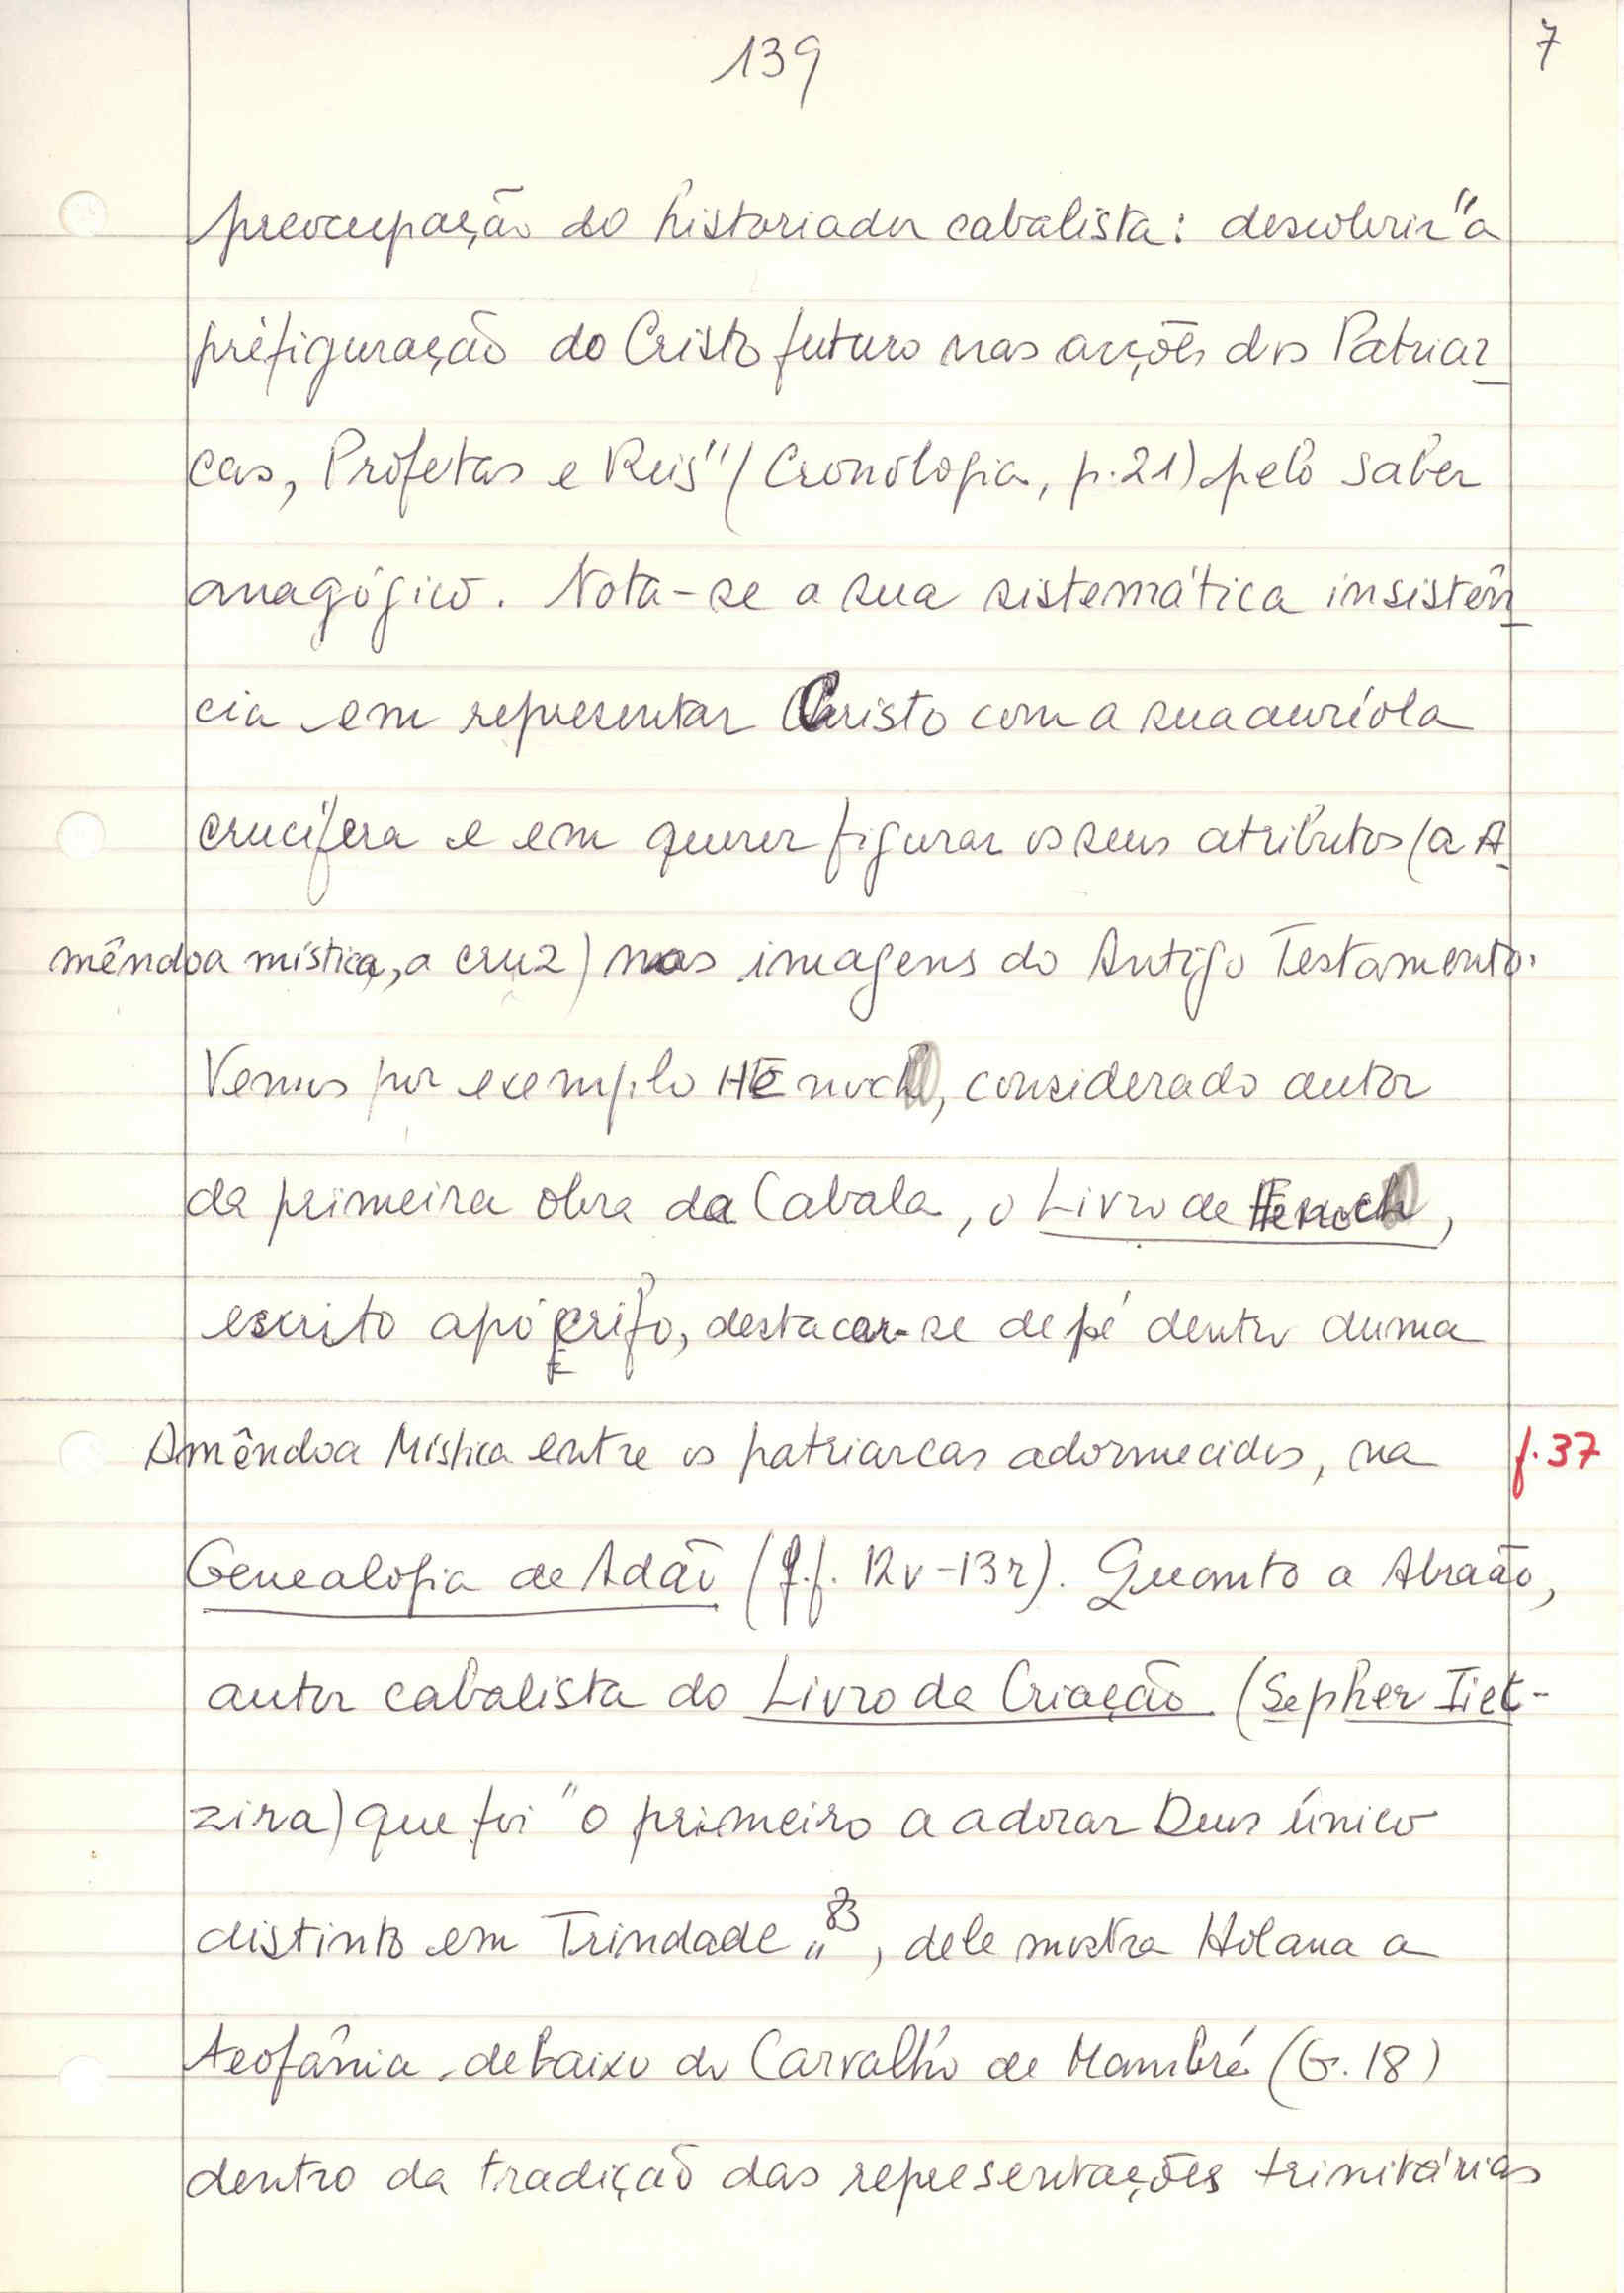 139
7
preocupação do historiador cabalista: descobrir "a
préfiguração do Cristo futuro nas acções dos Patriar
cas, Profetas e Reis" (Cronologia, p.21) pelo saber
anagógico. Nota-se a sua sistemática insistên
cia em representar Cristo com a sua auréola
crucífera e em querer figurar os seus atributos (a A
mêndoa mística, a cruz) nas imagens do Antigo Testamento.
Vemos por exemplo HEnoch, considerado autor
da primeira obra da Cabala, o Livro de Henoch,
escrito apócrifo, destacar-se de pé dentro duma
Amêndoa Mística entre os patriarcas adormecidos, na
f.37
Genealogia de Adão (f.f. 12v-13r). Quanto a Abraão,
autor cabalista do Livro da Criação (Sepher Iiet-
zira) que foi "o primeiro a adorar Deus único
distinto em Trindade"83, dele mostra Holana a
teofânia debaixo do Carvalho de Mambré (G. 18)
dentro da tradição das representações trinitárias